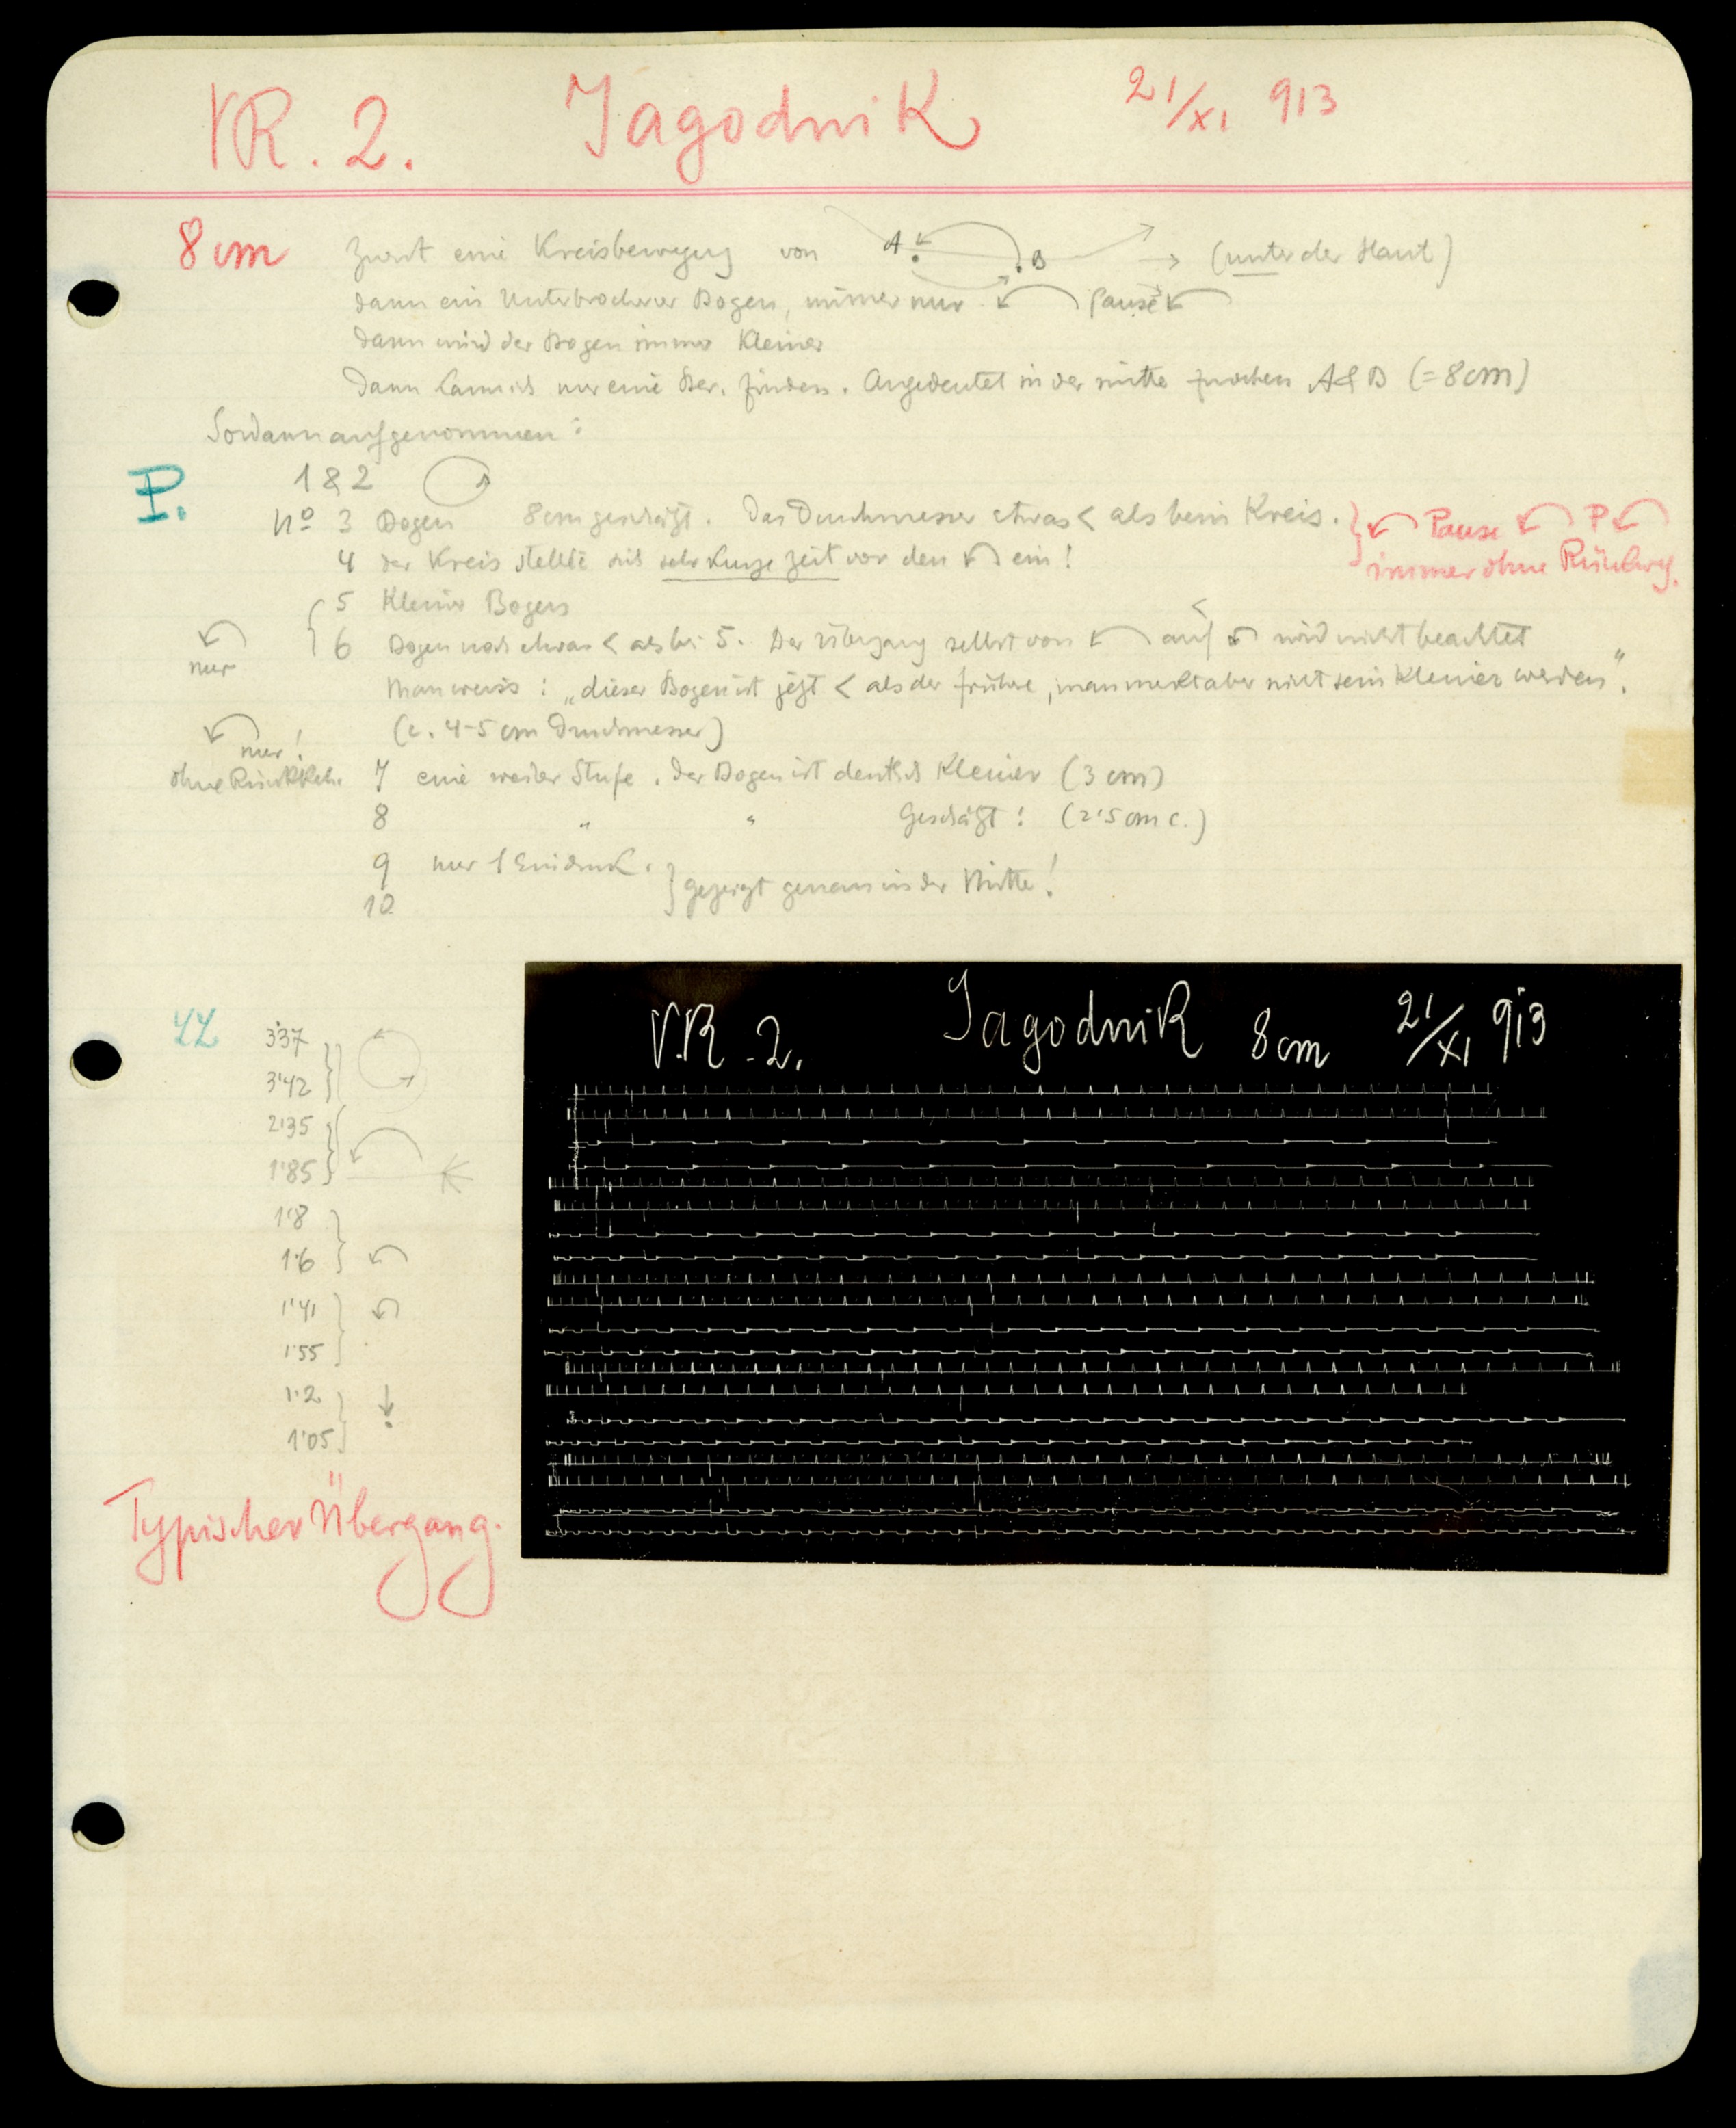 VR. 2. Jagodnik 21/XI 913
8cm Zuerst eine Kreisbewegung von A B (unter der Haut)
dann ein Unterbrochener Bogen, immer nur Pause
dann wird der Bogen immer Kleiner
Dann kann ich nur eine Ber. finden. Angedeutet in der mitte zwischen A & B (=8cm)
Sodann aufgenommen:
P. 1 & 2
No 3 Bogen 8cm geschätzt. Der Durchmesser etwas < als beim Kreis. } Pause P
4 der Kreis stellte sich sehr kurze Zeit vor den ein! immer ohne Rückweg.
5 Kleiner Bogen
6 Bogen noch etwas < als bei 5. Der Übergang selbst von auf wird nicht beachtet
nur
Man weiss: „dieser Bogen ist jetzt < als der frühere, man merkt aber nicht sein Kleiner werden".
(c. 4-5 cm Durchmesser)
nur!
ohne Rückkehr. 7 eine weitere Stufe. der Bogen ist deutlich Kleiner (3 cm)
8 " " Geschätzt: (2'5 cm c.)
9 nur 1 Eindruck. } gezeigt genau in der Mitte!
10
V.R. 2. Jagodnik 8cm 21/XI 913
3'37
3'42
2'35
1'85
1'8
1'6
1'41
1'55
1'2
1'05
Typischer Übergang.